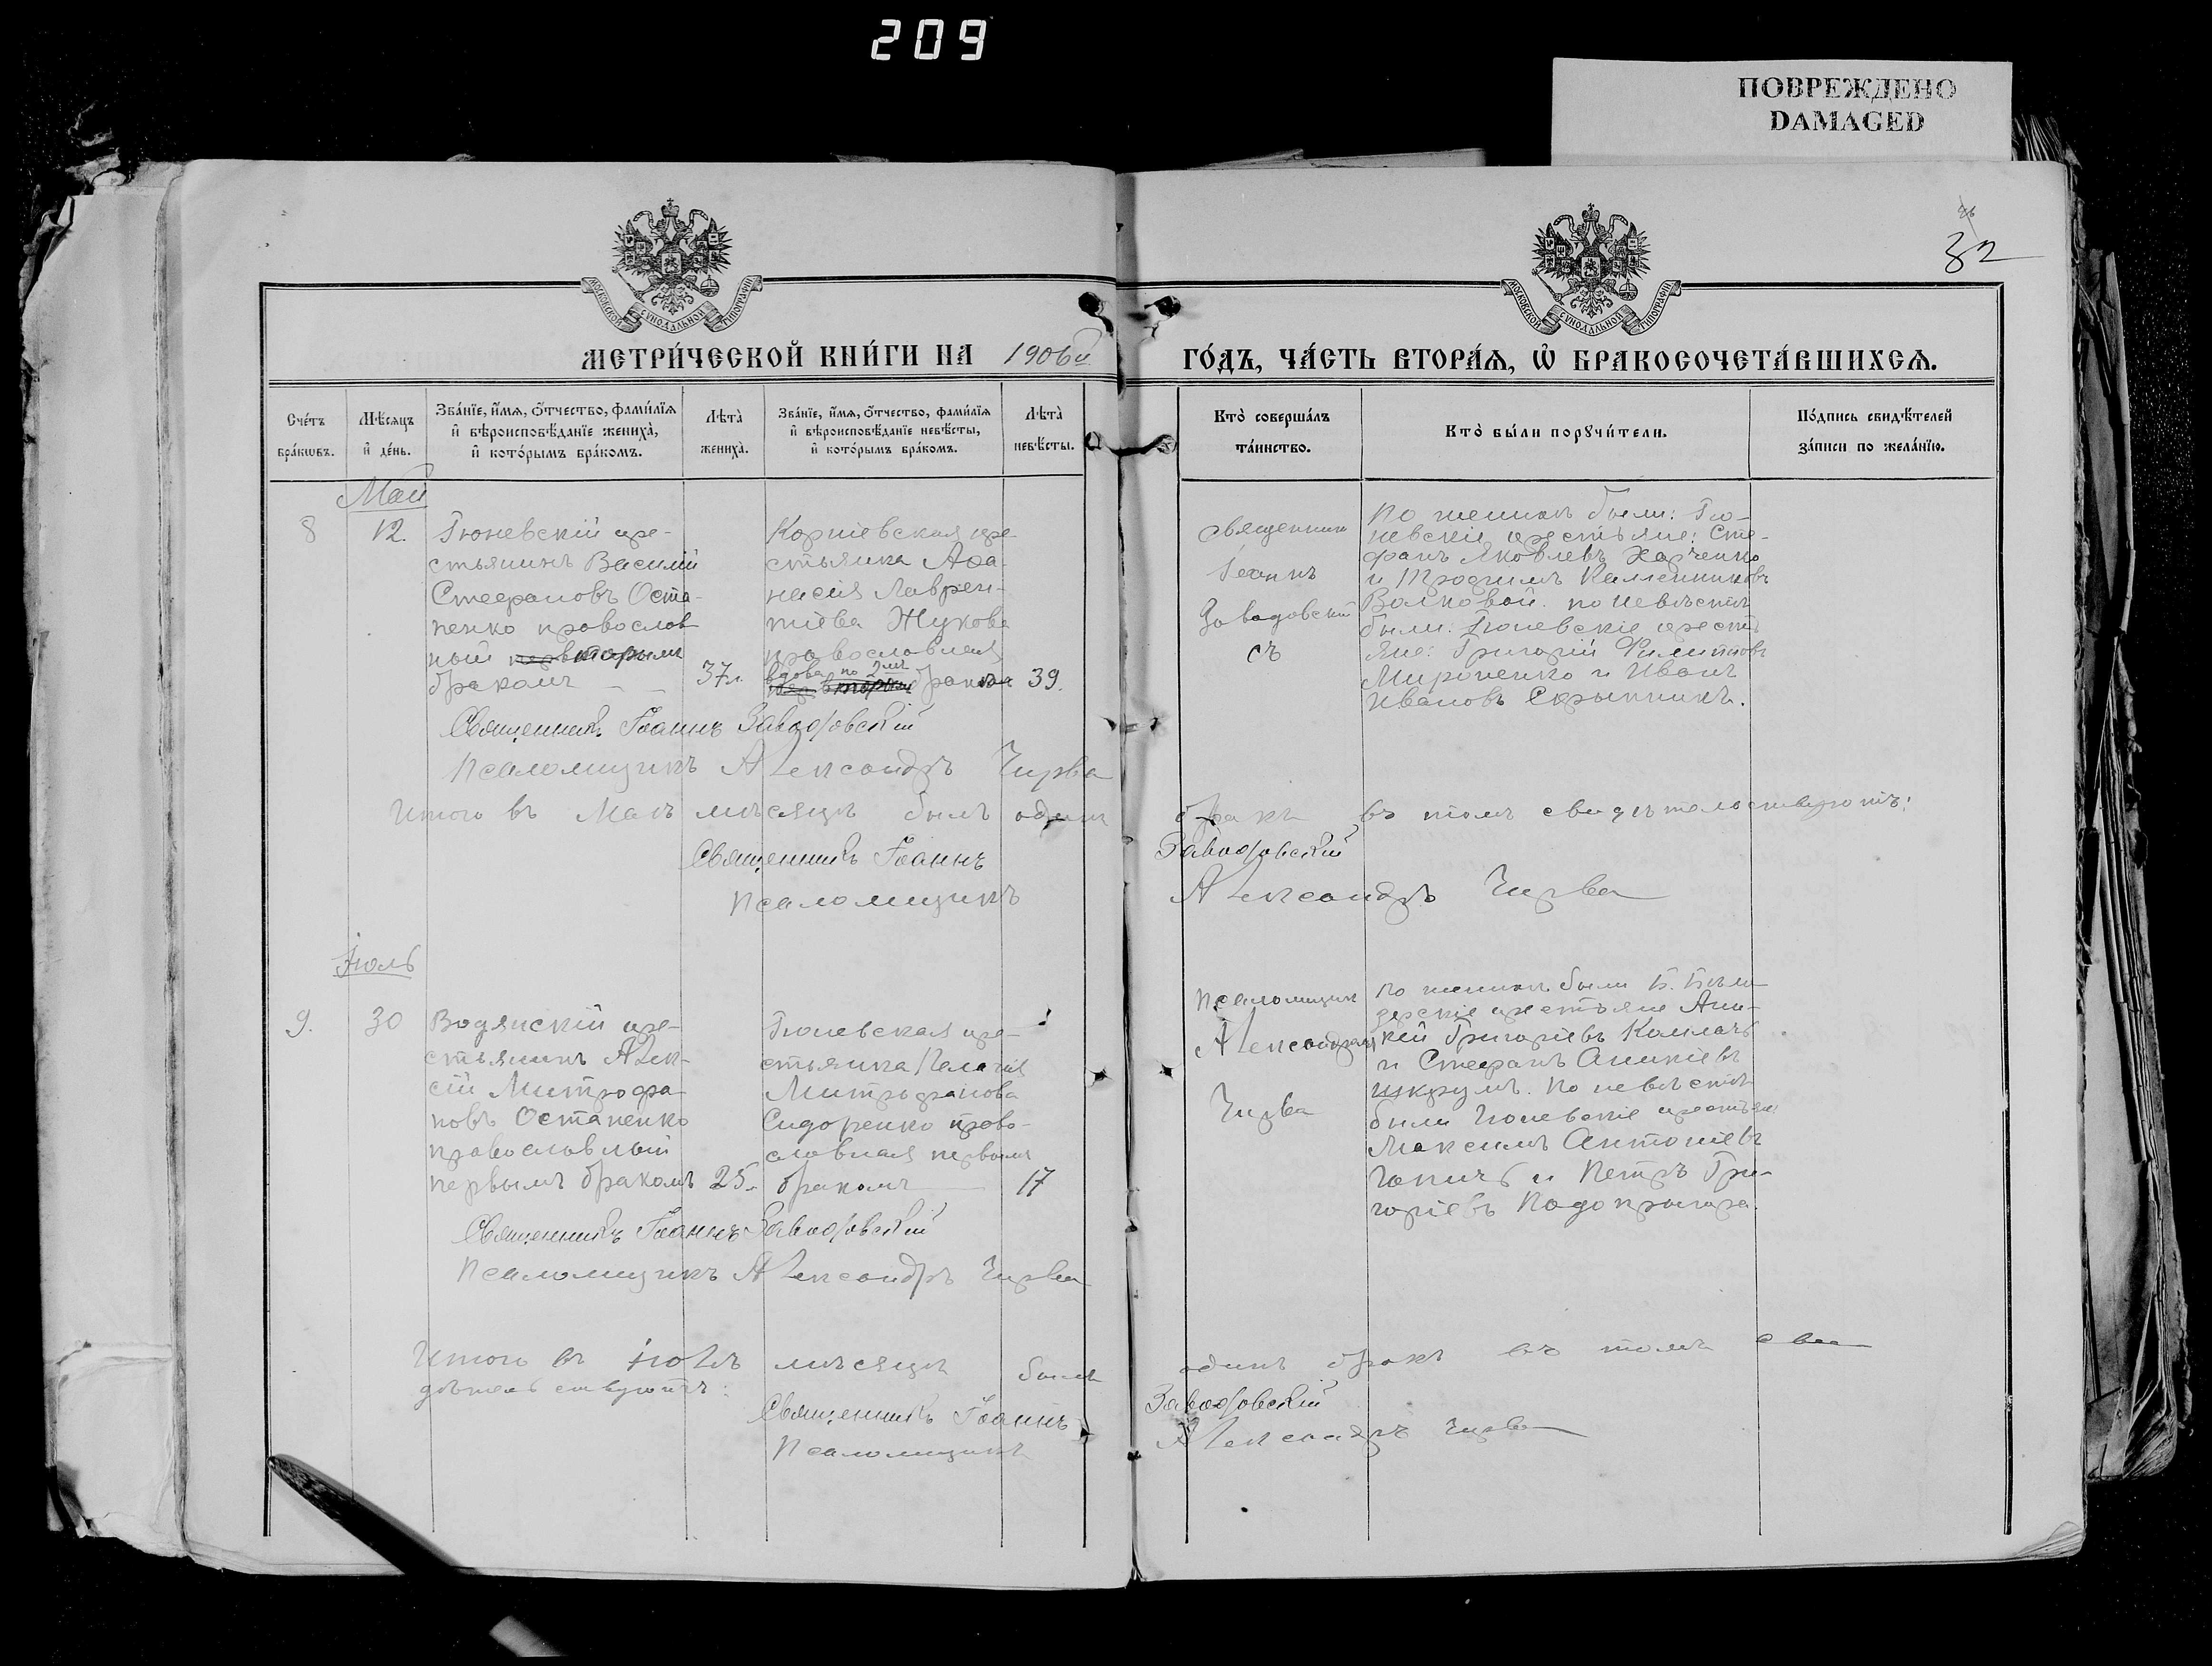 209
ПОВРЕЖДЕНО
DAMAGED
32
МОСКОВСКОЙ СУНОДАЛЬНОЙ ТИПОГРАФІИ
МОСКОВСКОЙ СУНОДАЛЬНОЙ ТИПОГРАФІИ
МЕТРИ́ЧЕСКОЙ КНИ́ГИ НА 1906й ГО́ДЪ, ЧА́СТЬ ВТОРА́Я, Ѡ БРАКОСОЧЕТА́ВШИХСЯ.
Сче́тъ
бра́ковъ.
Мѣ́сяцъ
и де́нь.
Зва́нїе, и́мя, о́тчество, фами́лїя
и вѣроисповѣ́данїе жениха̀,
и кото́рымъ бра́комъ.
Лѣта̀
жениха̀.
Зва́нїе, и́мя, о́тчество, фами́лїя
и вѣроисповѣ́данїе невѣ́сты,
и кото́рымъ бра́комъ.
Лѣта̀
невѣ́сты.
Кто̀ соверша́лъ
та́инство.
Кто̀ бы́ли поручи́тели.
По́дпись свидѣ́телей
за́писи по жела́нїю.
Май
8
12.
Гюневскій кре-
стьянинъ Василій
Стефановъ Оста-
пенко православ
ный вторымъ
бракомъ
37л.
Корніевская кре-
стьянка Афа-
насія Лаврен-
тіева Жукова
православная
вдова по 2мъ
бракомъ
39.
Священникъ
Іоаннъ
Заводовскій
съ
По женихѣ были: Гю-
невскіе крестьяне: Сте-
фанъ Яковлевъ Харченко
и Трофимъ Калинниковъ
Волковой. по невѣстѣ
были: Гюневскіе кресть
яне: Григорій Филиповъ
Мироненко и Иванъ
Ивановъ Скрынникъ.
Священникъ Іоаннъ Заводовскій
Псаломщикъ Александръ Чирва
Итого въ Маѣ мѣсяцѣ былъ одинъ бракъ въ томъ свидѣтельствуютъ:
Священникъ Іоаннъ Заводовскій
Псаломщикъ Александръ Чирва
Іюль
9.
30
Водянскій кре-
стьянинъ Алек-
сій Митрофа-
новъ Остапенко
православный
первымъ бракомъ
25.
Гюневская кре-
стьянка Пелагія
Митрофанова
Сидоренко право-
славная первымъ
бракомъ
17
Псаломщик
Александръ
Чирва
по женихѣ были Б. Бѣло-
зерскіе крестьяне Ани-
кій Григоріевъ Коллачъ
и Стефанъ Аникіевъ
Шкрумъ. По невѣстѣ
были Гюневскіе крестьяне
Максимъ Антоніевъ
и Петръ Гри-
горіевъ Подопригора.
Священникъ Іоаннъ Заводовскій
Псаломщикъ Александръ Чирва
Итого въ Іюлѣ мѣсяцѣ былъ одинъ бракъ въ томъ сви
дѣтельствуютъ:
Священникъ Іоаннъ Заводовскій
Псаломщикъ Александръ Чирва